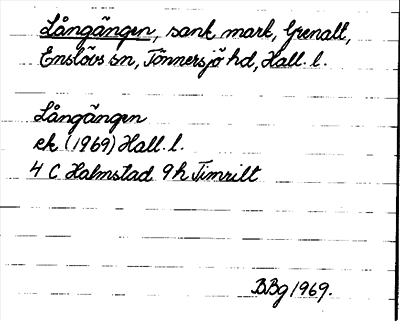 Långängen, sank mark, Grenalt,
Enslövs sn, Tönnersjö hd, Hall. l.
Långängen
ek (1969) Hall. l.
4 C Halmstad 9 h Timrilt
BBg 1969.